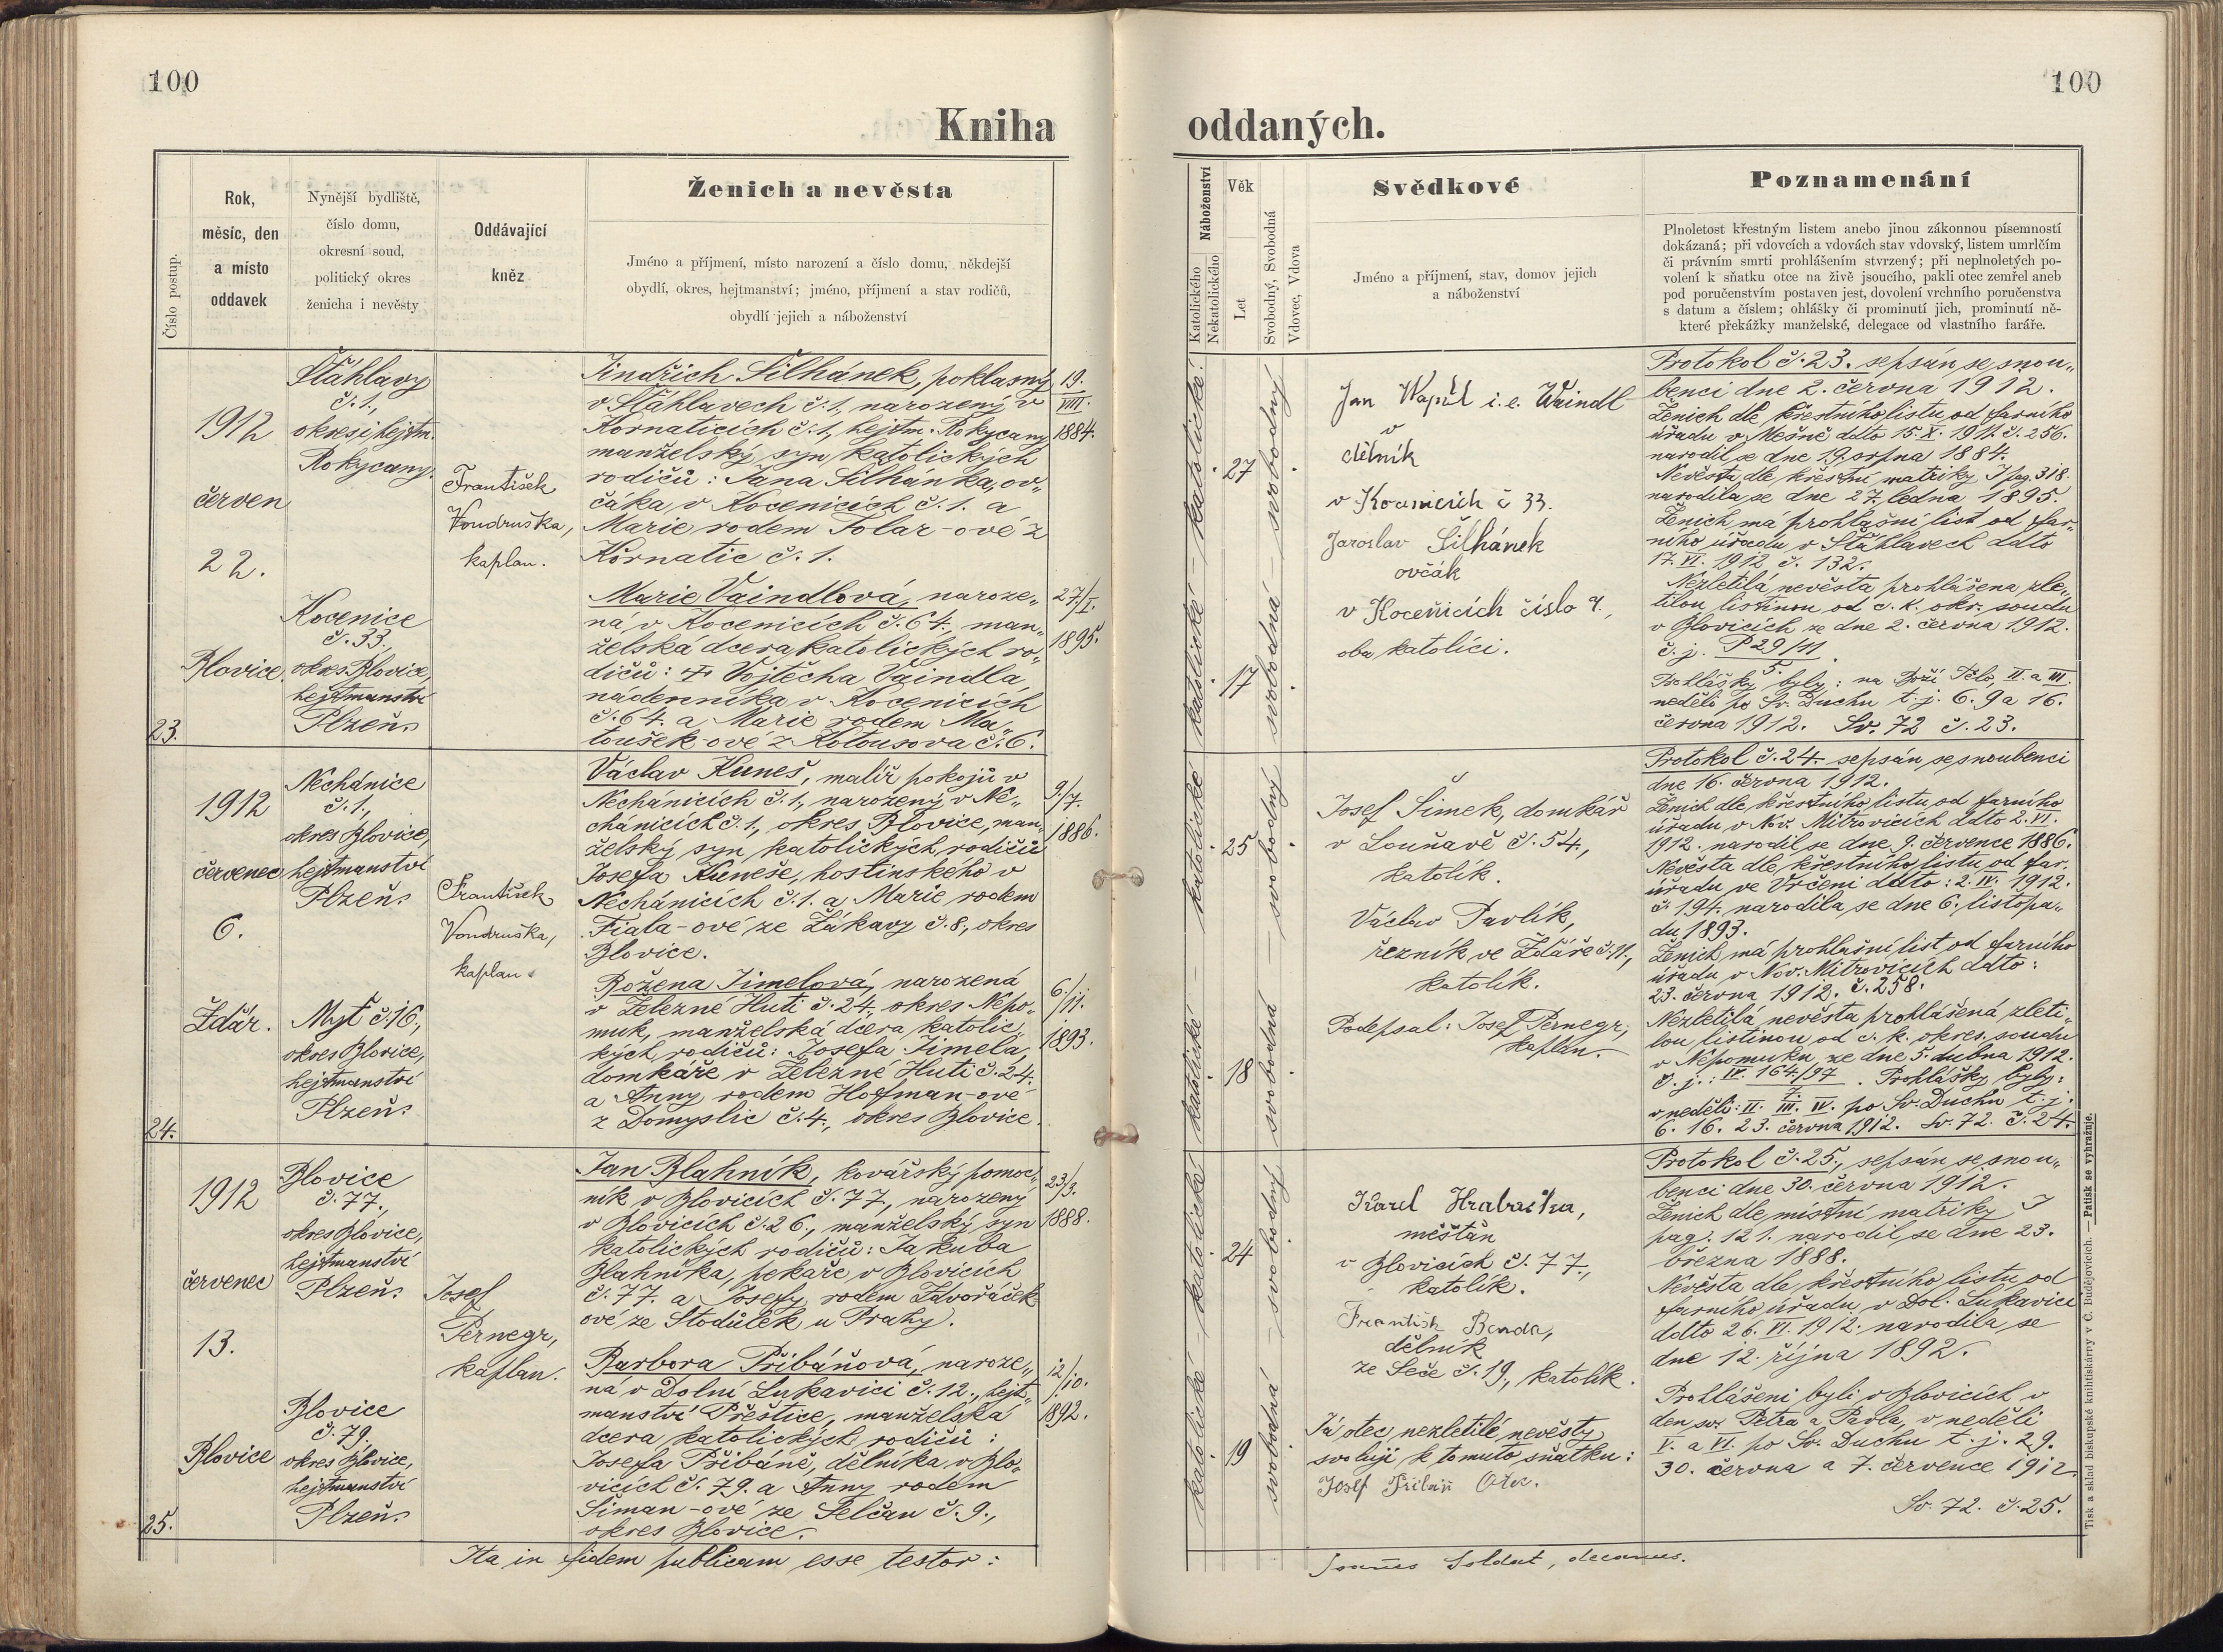 100
Kniha
Číslo postup.
Rok,
měsíc, den
a místo
oddavek
Nynější bydliště,
číslo domu,
okresní soud,
politický okres
ženicha i nevěsty
Oddávající
kněz
Ženich a nevěsta
Jméno a příjmení, místo narození a číslo domu, někdejší
obydlí, okres, hejtmanství; jméno, příjmení a stav rodičů,
obydlí jejich a náboženství
23.
1912
červen
22.
Blovice
Šťáhlavy
č. 1.,
okres i hejtm.
Rokycany.
Kocenice
č. 33.,
okres Blovice,
hejtmanství
Plzeň.
František
Vondruška,
kaplan.
Jindřich Šilhánek, poklasný
v Šťáhlavech č. 1, narozený v
Kornaticích č. 1, hejtm. Rokycany
manželský syn katolických
rodičů: Jana Šilhánka, ov„
čáka v Kocenicích č. 1. a
Marie rodem Tolar-ové z
Kornatic č. 1.
19.
VIII.
1884.
Marie Vaindlová, naroze„
ná v Kocenicích č. 64., man„
želská dcera katolických ro„
dičů: + Vojtěcha Vaindla
nádenníka v Kocenicích
č. 64. a Marie rodem Ma„
toušek-ové z Kotousova č. 6.
27./I.
1895.
24.
1912
červenec
6.
Ždár.
Nechánice
č. 1.,
okres Blovice,
hejtmanství
Plzeň.
Myť č. 16.,
okres Blovice,
hejtmanství
Plzeň.
František
Vondruška,
kaplan.
Václav Kuneš, malíř pokojů v
Nechánicích č. 1., narozený v Ne„
chánicích č. 1., okres Blovice, man„
želský syn katolických rodičů
Josefa Kuneše, hostinského v
Nechánicích č. 1. a Marie rodem
Fiala-ové ze Žákavy č. 8., okres
Blovice.
9./7.
1886.
Božena Jimelová, narozená
v Železné Huti č. 24., okres Nepo„
muk, manželská dcera katolic„
kých rodičů: Josefa Jimela,
domkáře v Železné Huti č. 24.
a Anny rodem Hoffman-ové
z Domyslic č. 4., okres Blovice.
6./11.
1893.
25.
1912
červenec
13.
Blovice
Blovice
č. 77.,
okres Blovice,
hejtmanství
Plzeň.
Blovice
č. 79.
okres Blovice,
hejtmanství
Plzeň.
Josef
Pernegr,
kaplan.
Jan Blahník, kovářský pomoc„
ník v Blovicích č. 77, narozený
v Blovicích č. 26., manželský syn
katolických rodičů: Jakuba
Blahníka, pekaře v Blovicích
č. 77. a Josefy rodem Zdvořáček
ové ze Stodůlek u Prahy.
23/3.
1888.
Barbora Přibáňová, naroze„
ná v Dolní Lukavici č. 12., hejt„
manství Přeštice, manželská
dcera katolických rodičů:
Josefa Přibáně, dělníka v Blo„
vicích č. 79. a Anny rodem
Šiman-ové ze Selčan č. 9.,
okres Blovice.
12/10.
1892.
Ita in fidem publicam esse testor:
100
oddaných.
Náboženství
Katolického
Nekatolického
Věk
Let
Svobodný, Svobodná
Vdovec, Vdova
Svědkové
Jméno a příjmení, stav, domov jejich
a náboženství
Poznamenání
Plnoletost křestným listem anebo jinou zákonnou písemností
dokázaná; při vdovcích a vdovách stav vdovský, listem umrlčím
či právním smrti prohlášením stvrzený; při neplnoletých po-
volení k sňatku otce na živě jsoucího, pakli otec zemřel aneb
pod poručenstvím postaven jest, dovolení vrchního poručenstva
s datum a číslem; ohlášky či prominutí jich, prominutí ně-
které překážky manželské, delegace od vlastního faráře.
katolické
27
svobodný
katolické
17
svobodná
i. e. Waindl
dělník
v Kocenicích č 33.
Jaroslav Šilhánek
ovčák
v Kocenicích číslo 1.,
oba katolíci.
Protokol č. 23. sepsán se snou„
benci dne 2. června 1912.
Ženich dle křestního listu od farního
úřadu v Mešně ddto 15. X. 1911. č. 256.
narodil se dne 19. srpna 1884.
Nevěsta dle křestní matriky I pag. 318.
narodila se dne 27. ledna 1895.
Ženich má prohlašní list od far„
ního úřadu v Šťáhlavech ddto
17. VI. 1912 č. 132.
Nezletilá nevěsta prohlášena zle„
tilou listinou od c. k. okr. soudu
v Blovicích ze dne 2. června 1912.
č. j. P 29/11
5.
Prohlášky byly: na Boží Tělo, II. a III.
neděli po Sv. Duchu t. j. 6. 9 a 16.
června 1912. Sv. 72 č. 23.
katolické
25
svobodný
katolické
18
svobodná
Josef Šimek, domkář
v Louňavě č. 54.,
katolík.
Václav Pavlík,
řezník ve Ždáře č. 11.,
katolík.
Podepsal: Josef Pernegr,
kaplan.
Protokol č. 24. sepsán se snoubenci
dne 16. června 1912.
Ženich dle křestního listu od farního
úřadu v Nov. Mitrovicích ddto 2. VI.
1912. narodil se dne 9. července 1886.
Nevěsta dle křestního listu od far.
úřadu ve Vrčeni ddto: 2. IV. 1912.
č. 194. narodila se dne 6. listopa„
du 1893.
Ženich má prohlašní list od farního
úřadu v Nov. Mitrovicích ddto:
23. června 1912. č. 258.
Nezletilá nevěsta prohlášená zleti„
lou listinou od c. k. okres. soudu
v Nepomuku ze dne 5. dubna 1912.
č. j.: IV. 164/97. Prohlášky byly:
v neděli: II. III. IV. po Sv. Duchu t. j.
6. 16. 23. června 1912. Sv. 72. č. 24.
katolické
24
svobodný
katolické
19
svobodná
Karel
měšťan
v Blovicích č. 77.,
katolík.
František Benda,
dělník
ze Seče č. 19., katolík.
Já otec nezletilé nevěsty
svoluji k tomuto sňatku:
Josef Přibáň Otec.
Protokol č. 25., sepsán se snou„
benci dne 30. června 1912.
Ženich dle místní matriky I
pag. 121. narodil se dne 23.
března 1888.
Nevěsta dle křestního listu od
farního úřadu v Dol. Lukavici
ddto 26. VI. 1912. narodila se
dne 12. října 1892.
Prohlášeni byli v Blovicích v
den sv. Petra a Pavla, v neděli
V. a VI. po Sv. Duchu t. j. 29.
30. června a 7. července 1912
Sv. 72. č. 25.
Soldat, decanus.
Tisk a sklad biskupské knihtiskárny v Č. Budějovicích. — Patisk se vyhražuje.